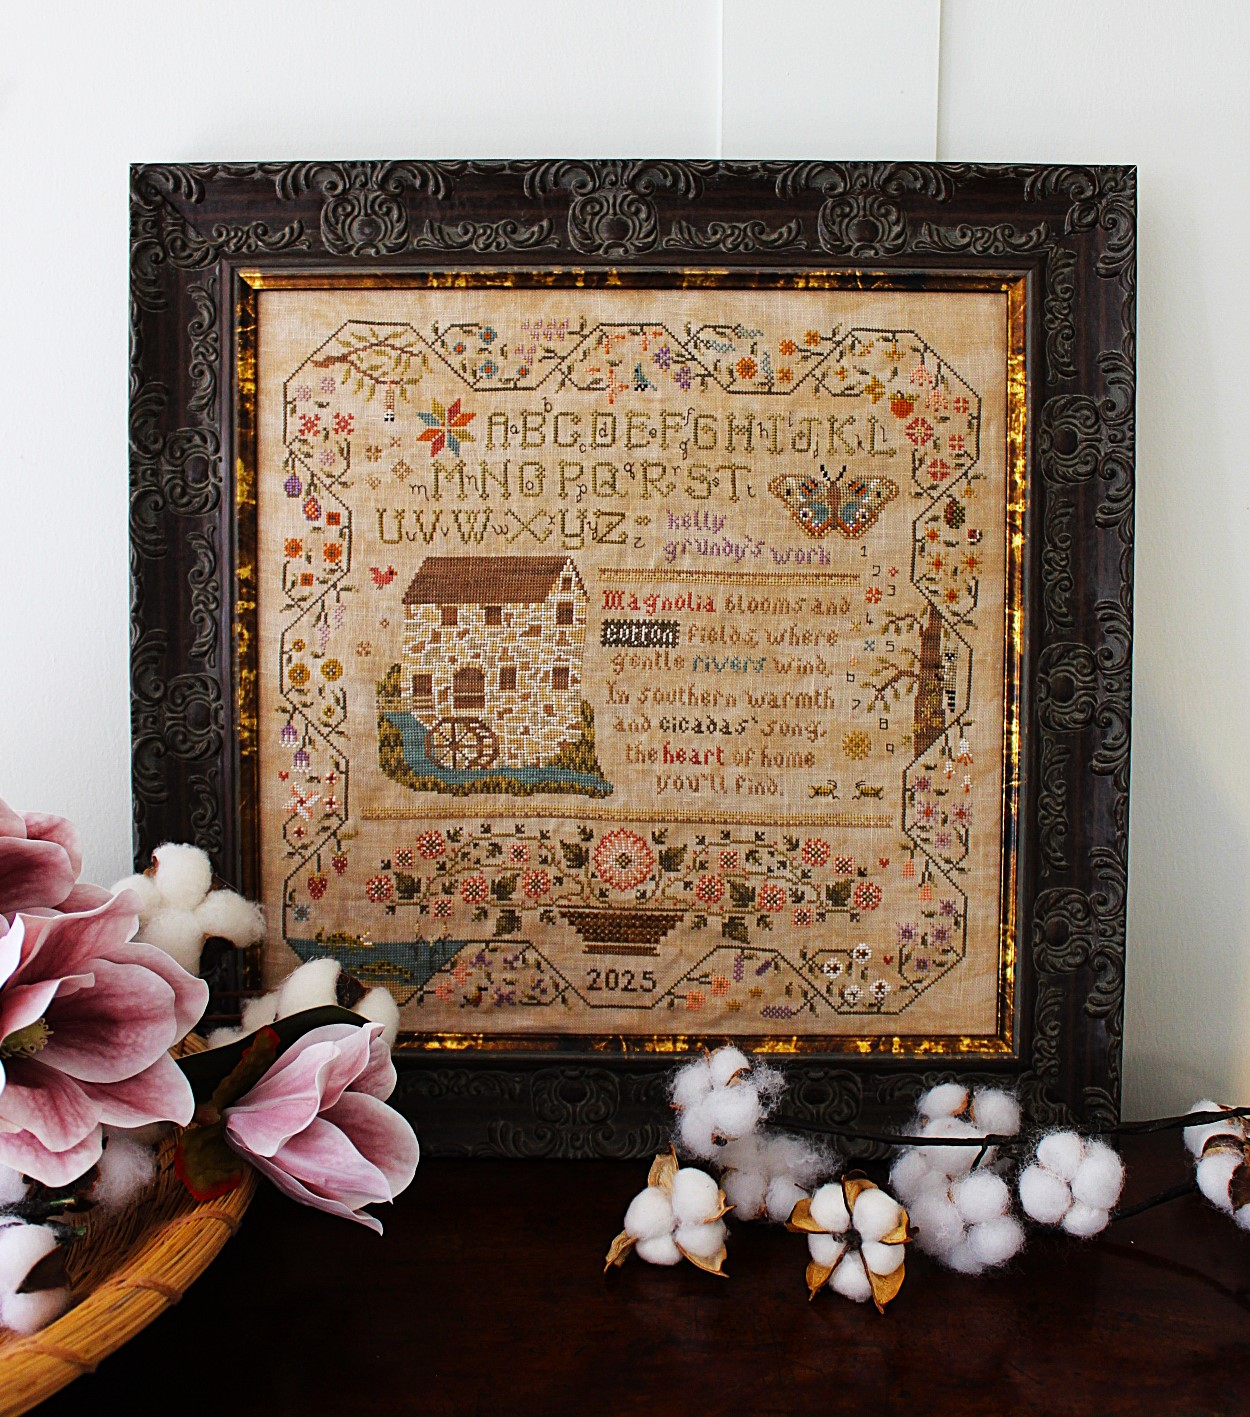 ABCDEFGHIJKL
a b c d e f g h i j k l
MNOPQRST
m n o p q r s t
UVWXYZ
u v w x y z
kelly
grundy's work
Magnolia blooms and
cotton fields, where
gentle rivers wind.
In southern warmth
and cicadas' song,
the heart of home
you'll find.
1
2
3
4
5
6
7
8
9
2025